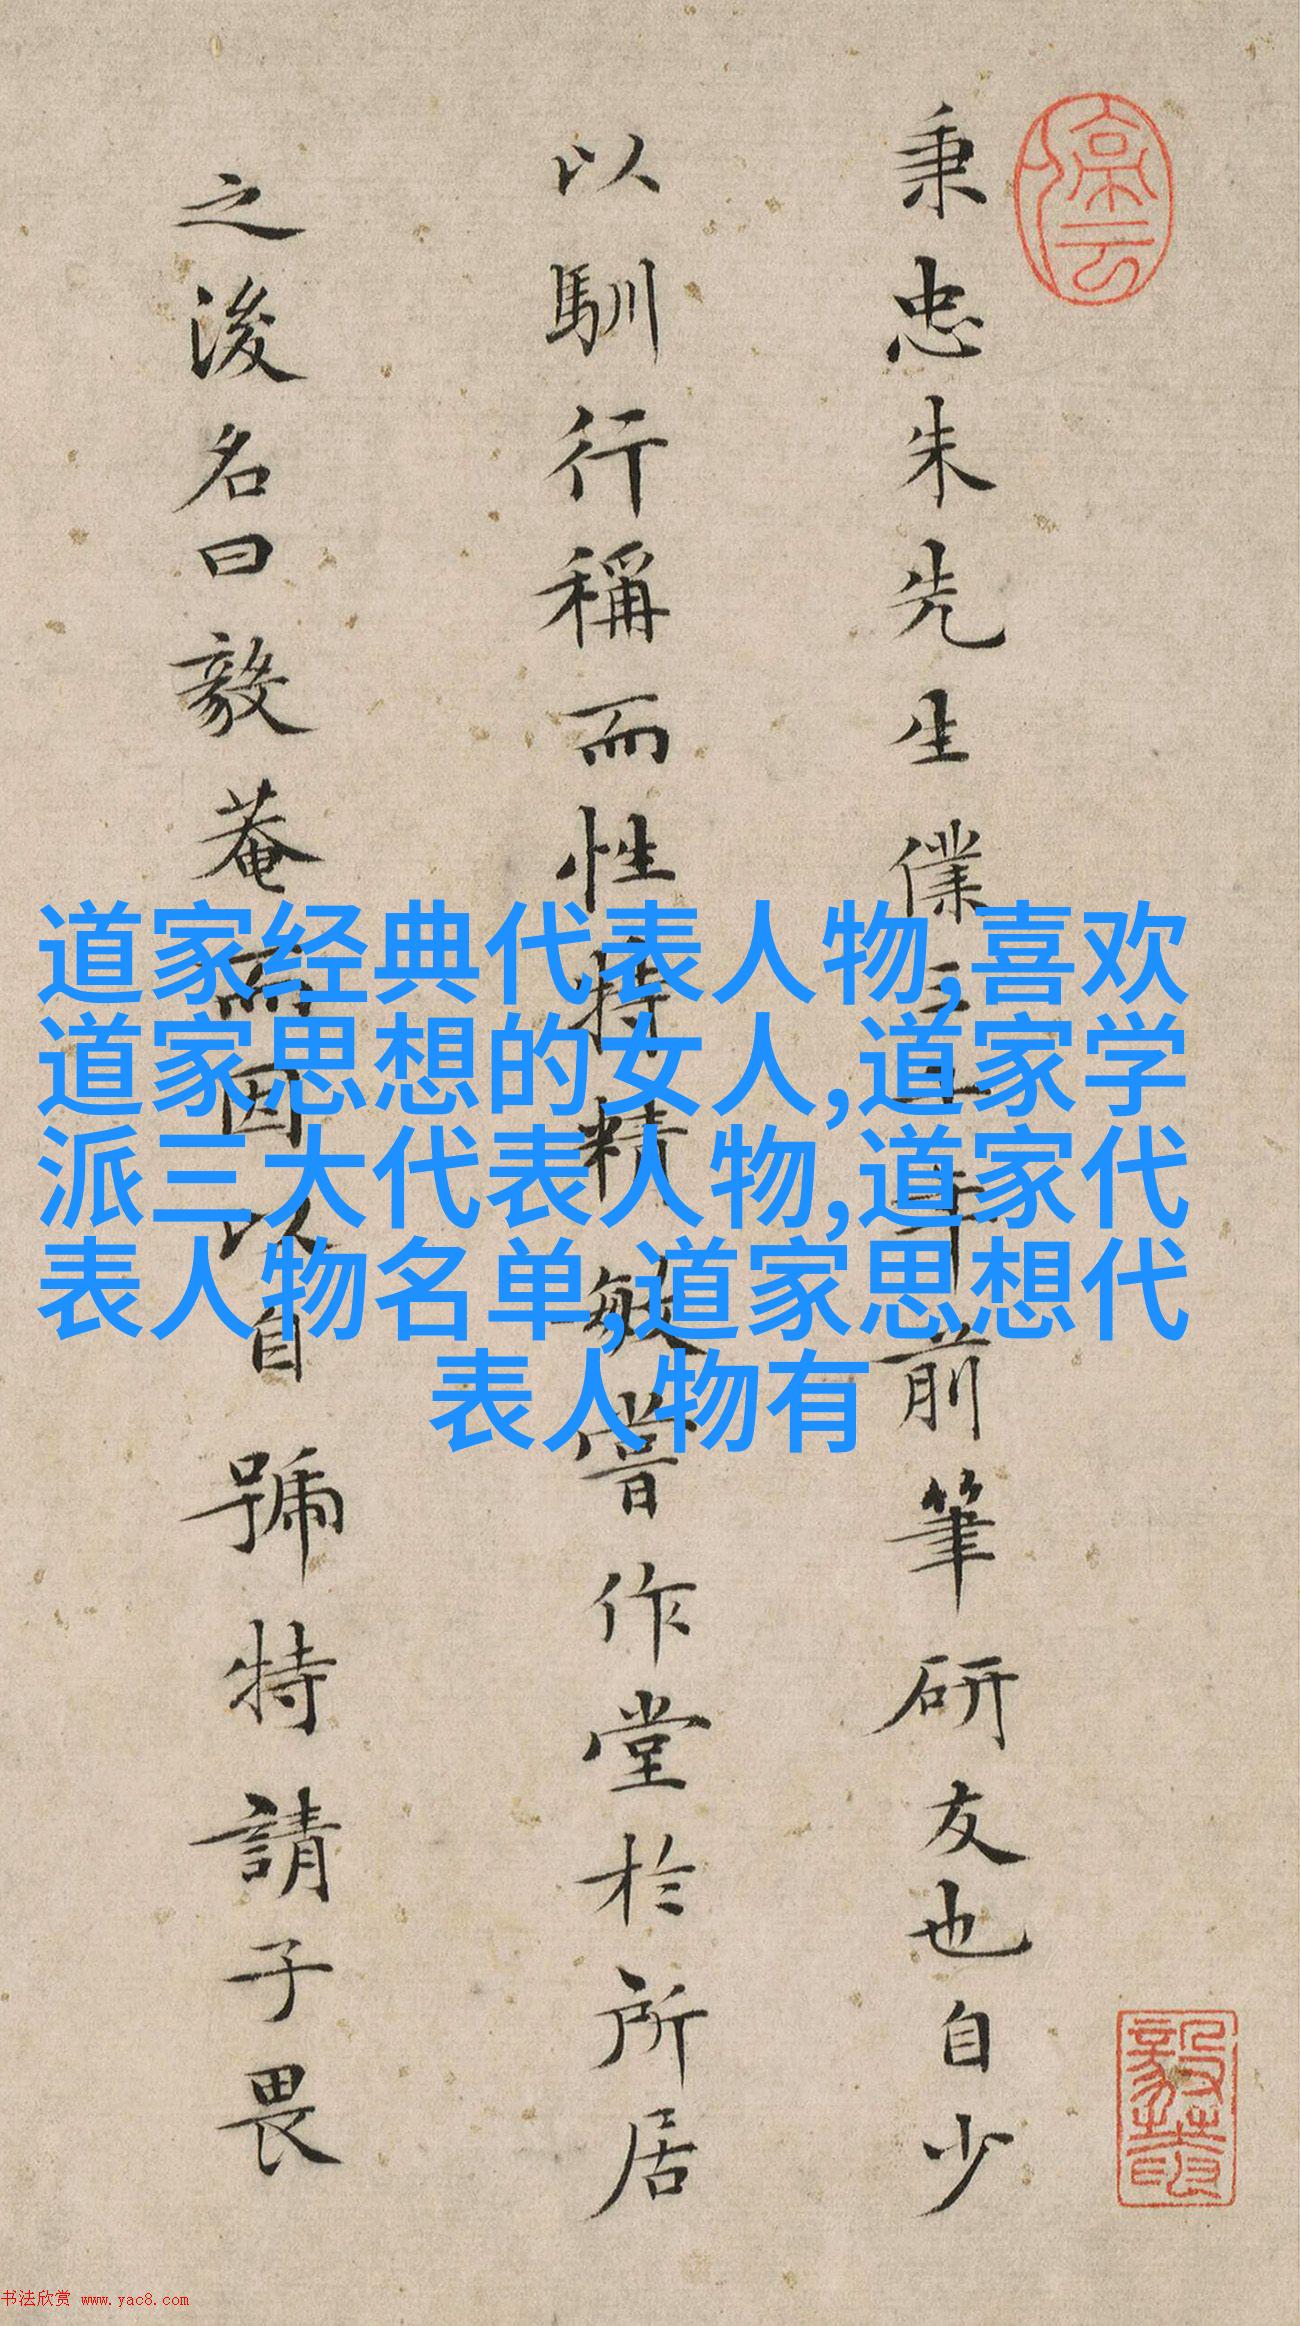 秉忠朱先生僕三十年前筆研友也自少
以馴行稱而性特精敏嘗作堂於所居
之後名曰毅菴而因以自號特請子畏
道家经典代表人物,喜欢
道家思想的女人,道家学
派三大代表人物,道家代
表人物名单,道家思想代
表人物有
书法欣赏 www.yac8.com